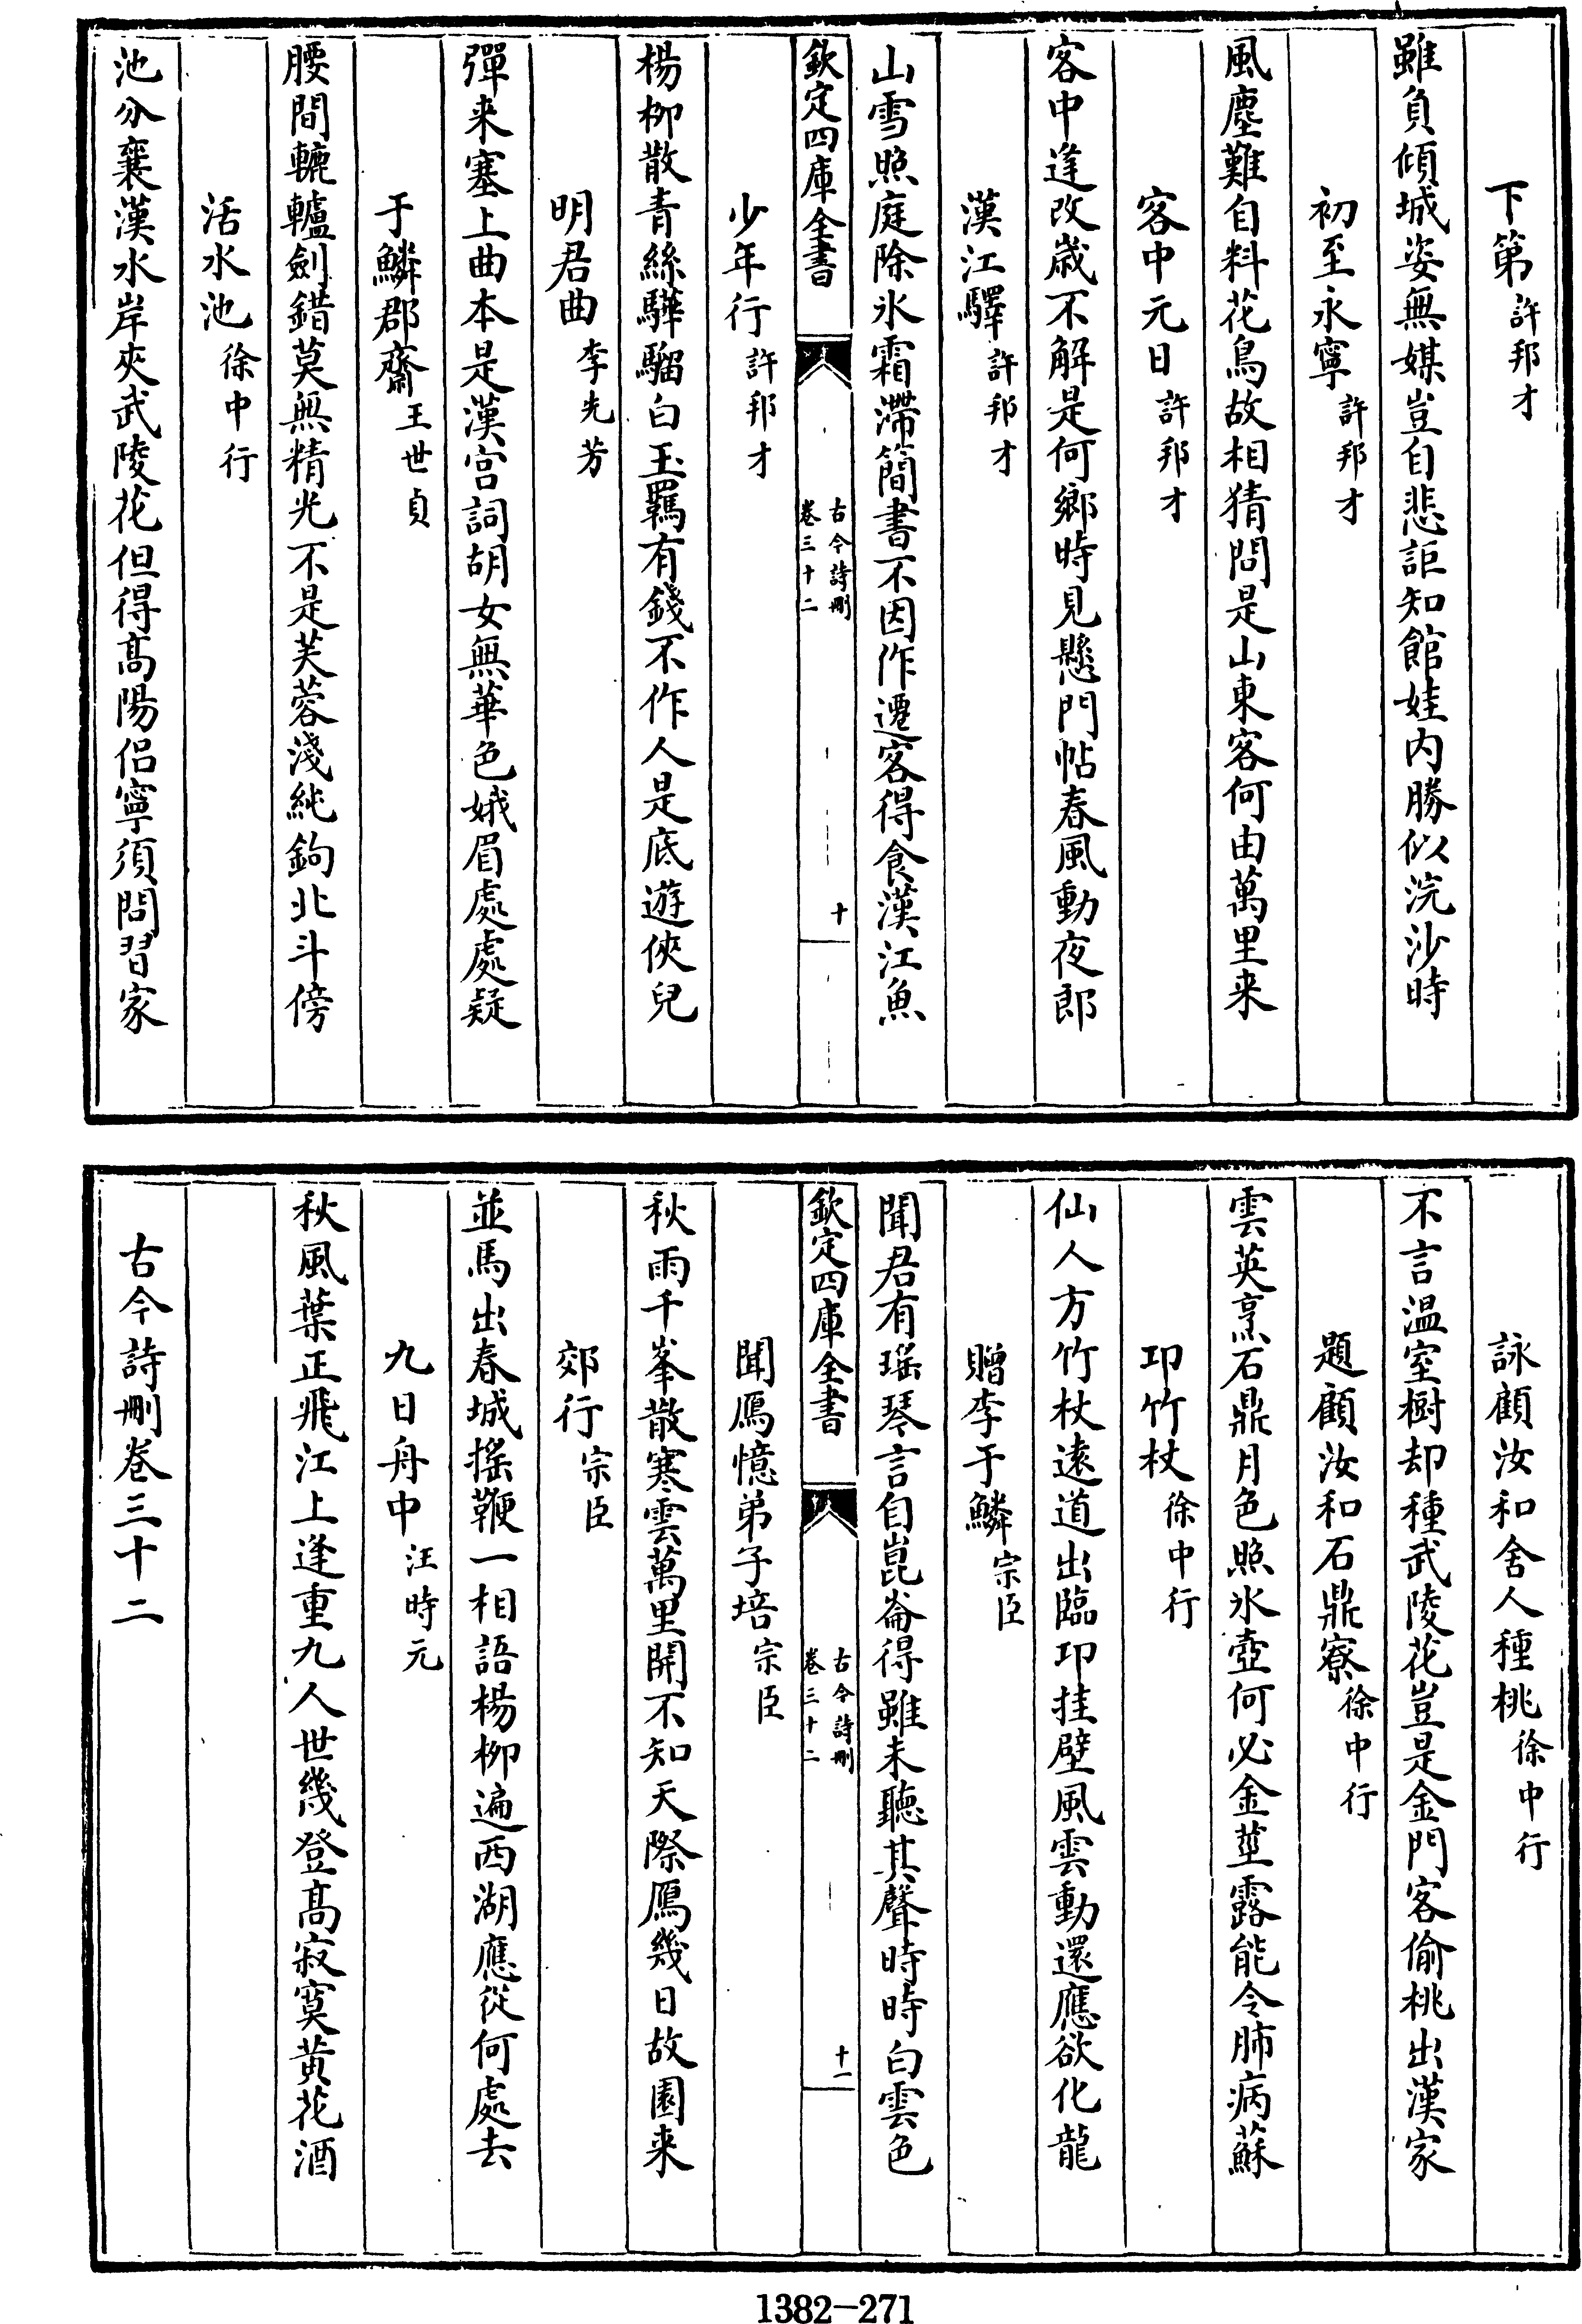 下第許邦才
雖負傾城姿無媒豈自悲詎知館娃内勝似浣沙時
初至永寧許邦才
風塵難自料花鳥故相猜問是山東客何由萬里来
客中元日許邦才
客中逢改歳不解是何鄉時見懸門帖春風動夜郎
漢江驛許邦才
山雪照庭除氷霜滯簡書不因作遷客得食漢江魚
欽定四庫全書
古今詩刪
卷三十二
十
少年行許邦才
楊栁散青絲驊騮白玉羈有錢不作人是底遊俠兒
明君曲李先芳
彈来塞上曲本是漢宫詞胡女無華色娥眉處處疑
于鱗郡齋王世貞
腰間轆轤劍錯莫無精光不是芙蓉淺純鉤北斗傍
活水池徐中行
池分襄漢水岸夾武陵花但得髙陽侣寧須問習家
詠顧汝和舍人種桃徐中行
不言温室樹却種武陵花豈是金門客偷桃出漢家
題顧汝和石鼎寮徐中行
雲英烹石鼎月色照氷壺何必金莖露能令肺病蘇
卭竹杖徐中行
仙人方竹杖逺道出臨卭挂壁風雲動還應欲化龍
贈李于鱗宗臣
聞君有瑶琴言自崑崙得雖未聽其聲時時白雲色
欽定四庫全書
古今詩刪
卷三十二
十一
聞鴈憶弟子培宗臣
秋雨千峯散寒雲萬里開不知天際鴈幾日故園来
郊行宗臣
並馬出春城揺鞭一相語楊栁遍西湖應從何處去
九日舟中汪時元
秋風葉正飛江上逢重九人世幾登髙寂寞黄花酒
古今詩刪卷三十二
1382—271